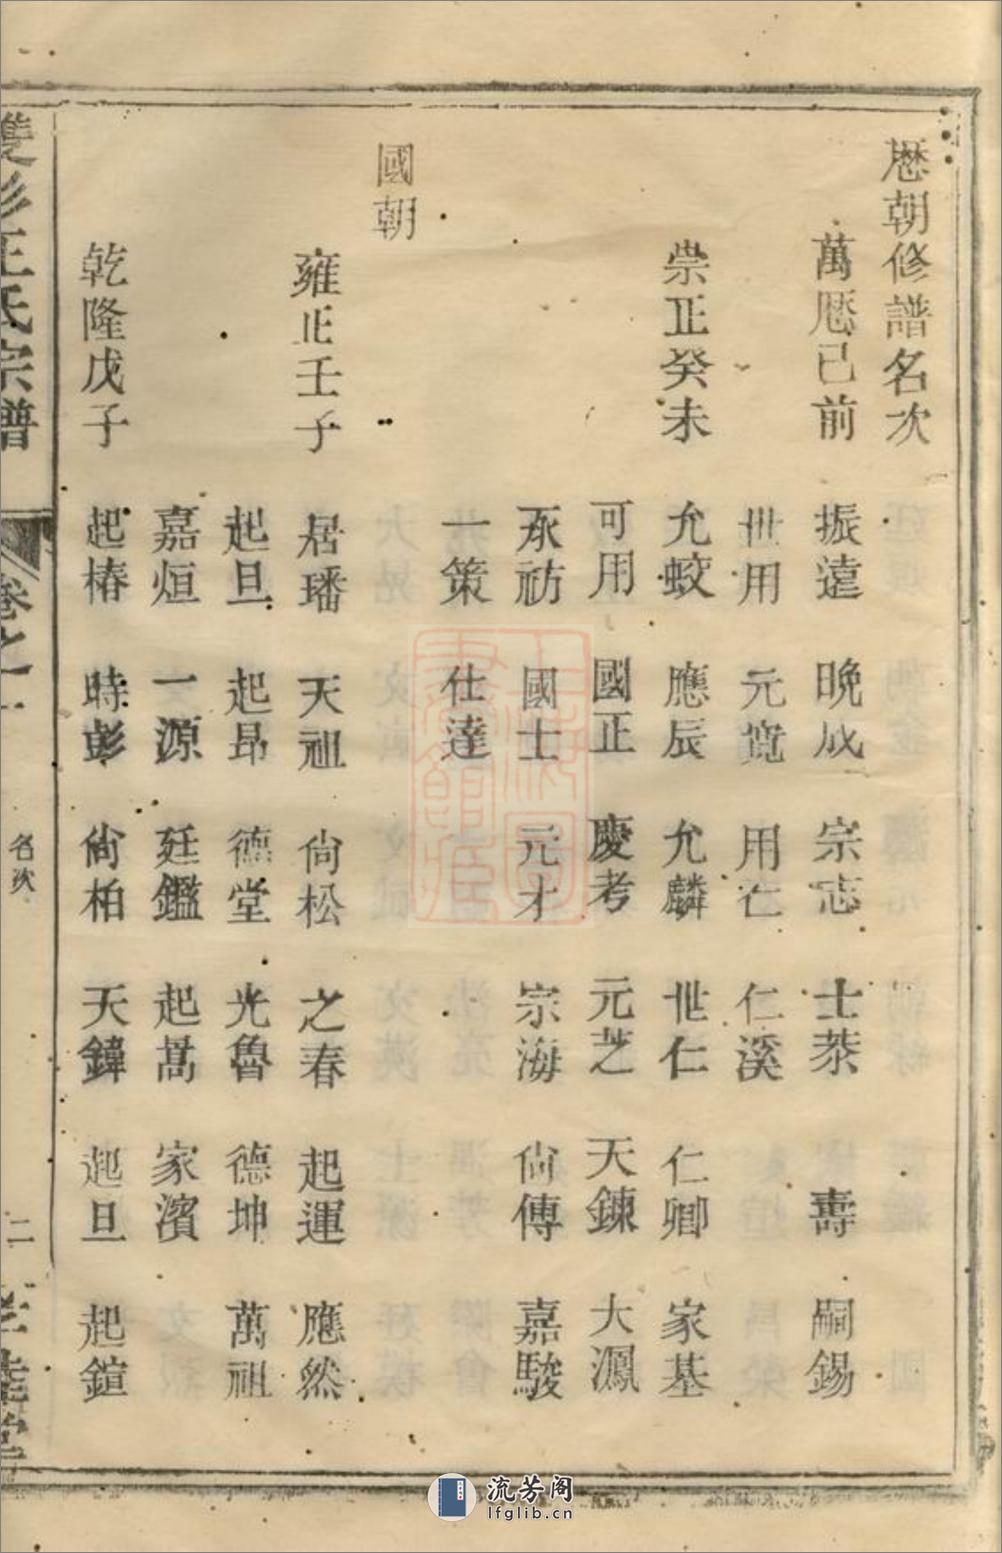 歷朝修譜名次
萬厯已前 振遠 晚成 宗志 士恭 壽 嗣錫
世用 元寬 用仁 仁溪
崇正癸未 允蛟 應辰 允麟 世仁 仁卿 家基
可用 國正 慶考 元芝 天鍊 大鳳
承祊 國士 元才 宗海 尙傳 嘉駿
一策 仕達
國朝
雍正壬子 居璠 天祖 尙松 之春 起運 應然
起旦 起昂 德堂 光魯 德坤 萬祖
嘉烜 一源 廷鑑 起暠 家濱
乾隆戊子 起椿 時彭 尙柏 天鍏 起旦 起鍹
雙杉王氏宗譜 卷之一 名次 二 孝睦堂
流芳阁
lfglib.cn